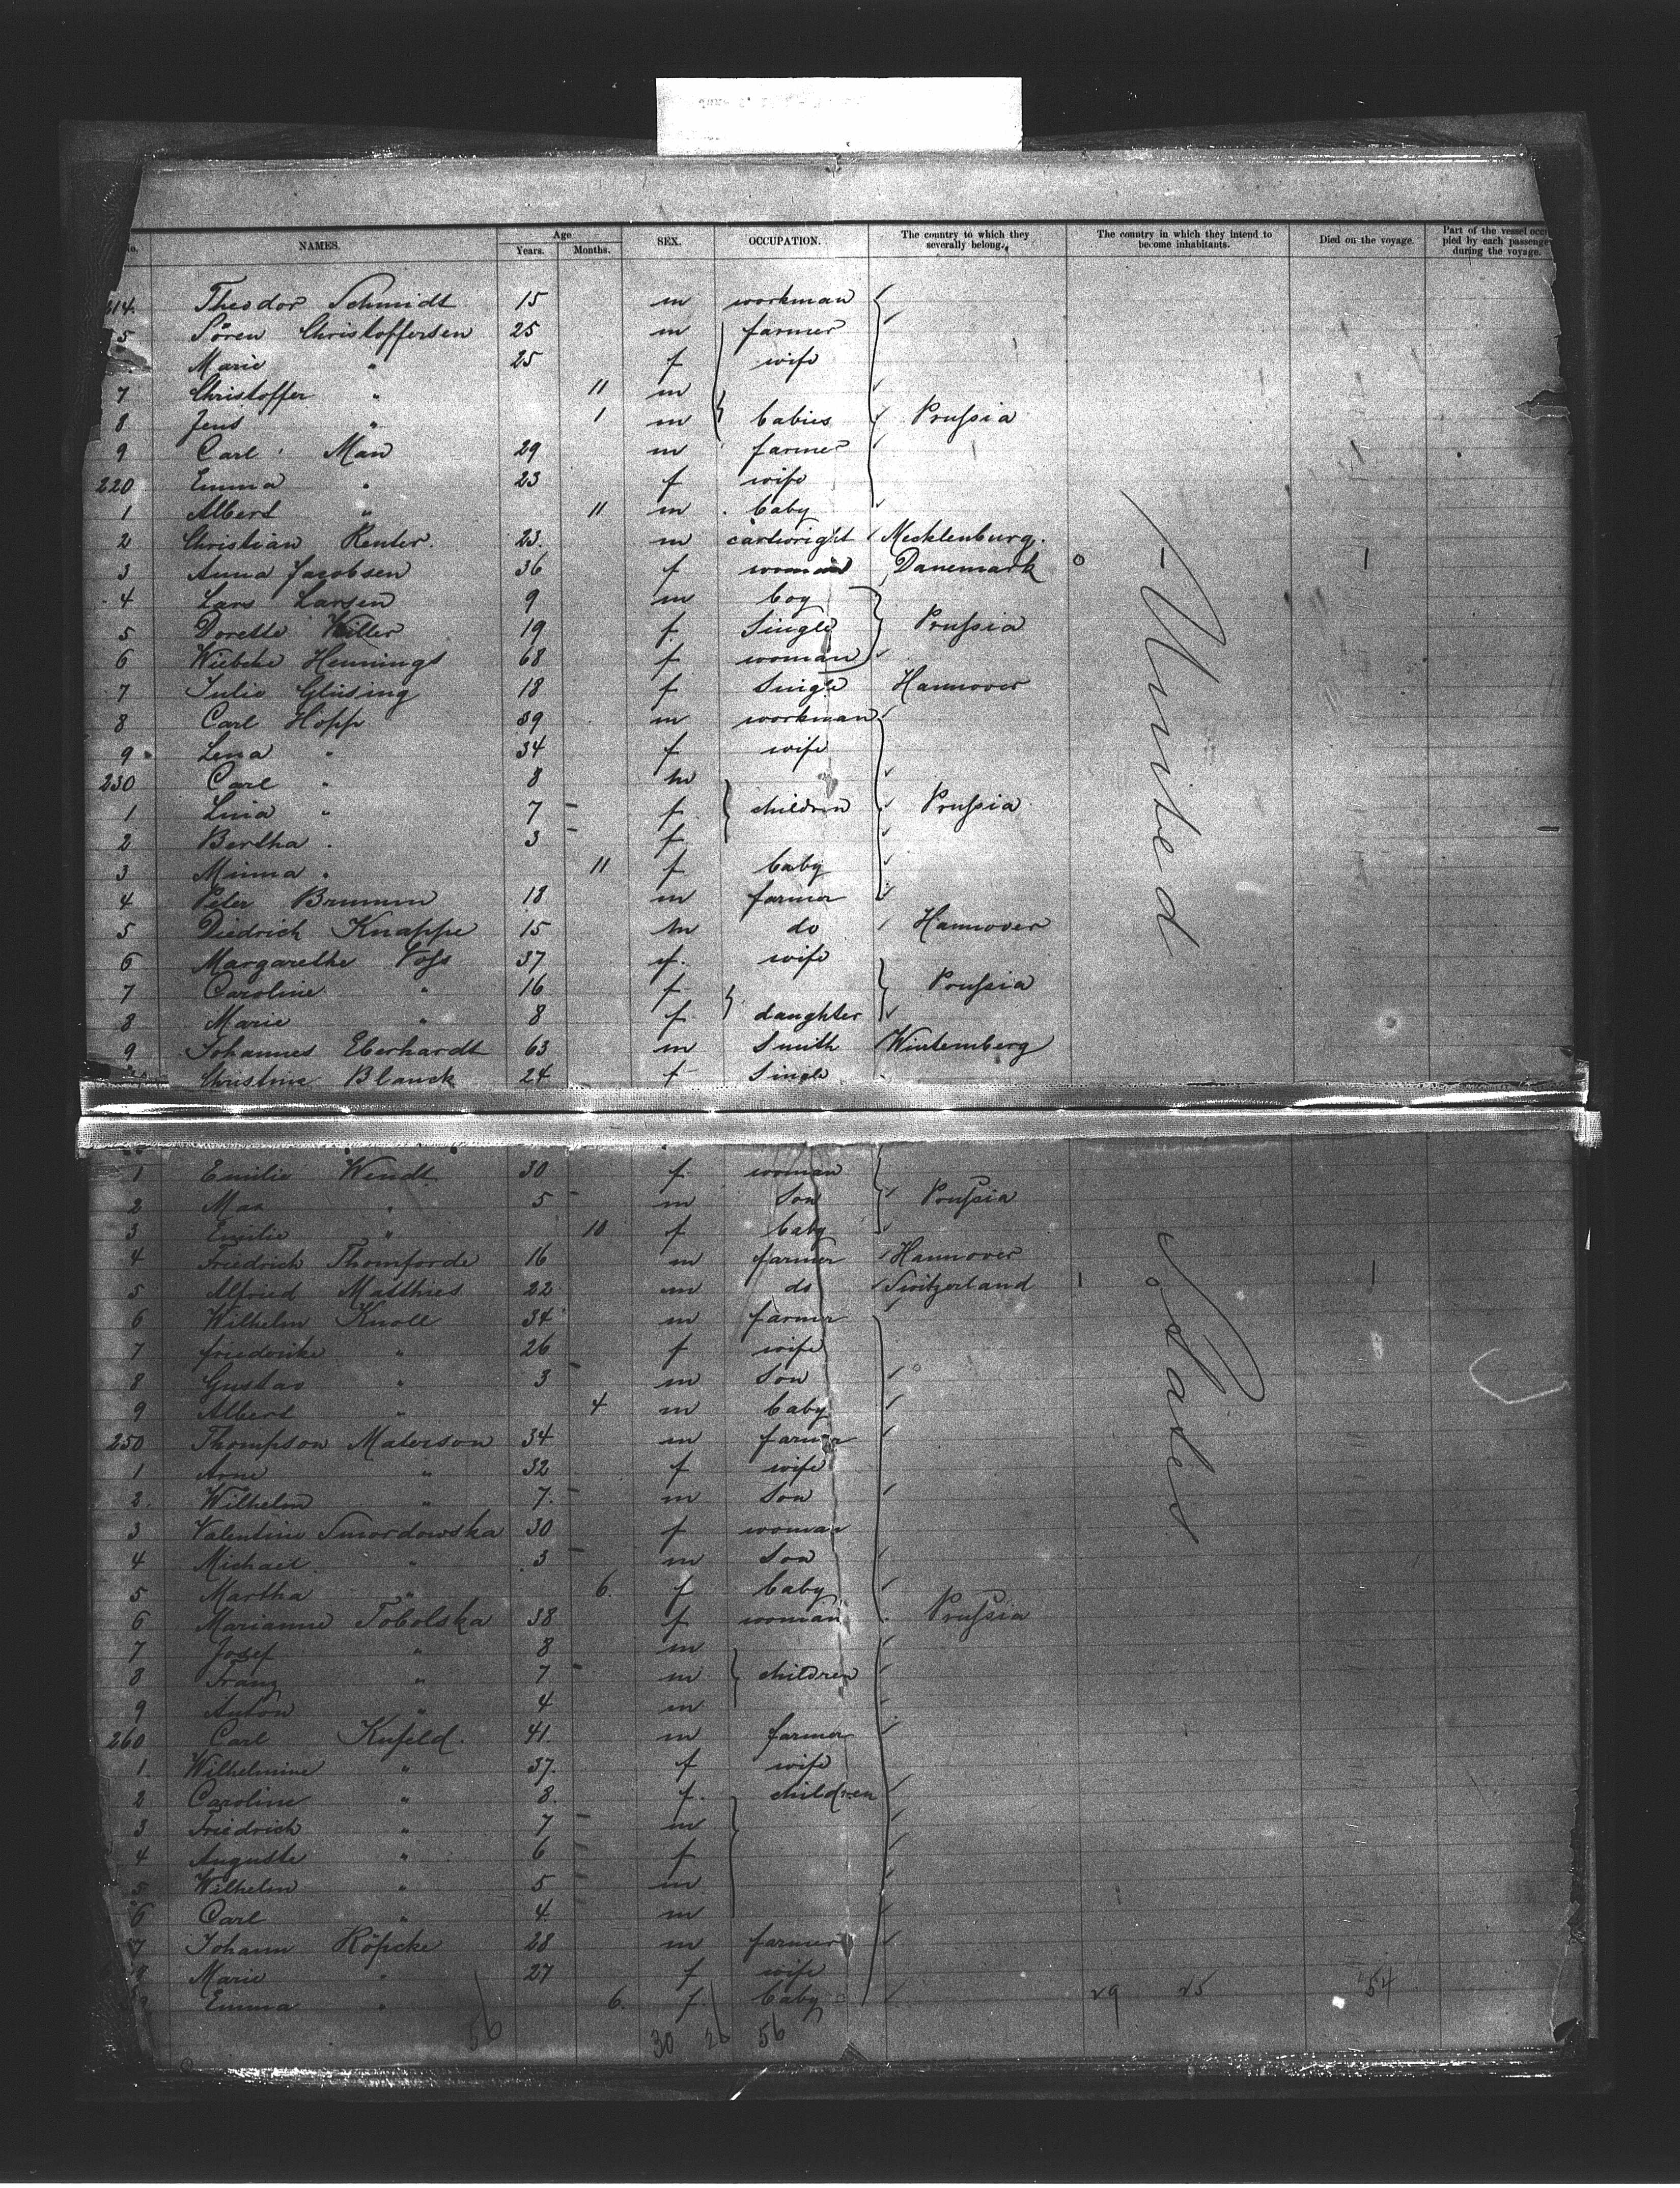 No. NAMES. Age Years. Months. SEX. OCCUPATION. The country to which they severally belong. The country in which they intend to become inhabitants. Died on the voyage. Part of the vessel occupied by each passenger during the voyage.
214. Theodor Schmidt 15 m workman
5 Sören Christoffersen 25 m farmer
Marie " 25 f wife
7 Christoffer " 11 m
8 Jens " 1 m babies Prußia
9 Carl Man 29 m farmer
220 Emma " 23 f wife
1 Albert " 11 m baby
2 Christian Reuter. 23. m cartwright Mecklenburg.
3 Anna Jacobsen 36 f woman Danemark
4 Lars Larsen 9 m boy
5 Dorette Witter 19 f Single Prußia
6 Wiebcke Hennings 68 f woman
7 Julie Glüsing 18 f Single Hannover
8 Carl Höpp 39 m workman
9 Lena " 34 f wife
230 Carl " 8 m
1 Lina " 7 f children Prußia
2 Bertha " 3 f
3 Minna " 11 f baby
4 Peter Brumm 18 m farmer
5 Diedrich Knappe 15 m do Hannover
6 Margarethe Voss 37 f. wife
7 Caroline " 16 f Prußia
8 Marie " 8 f daughter
9 Johannes Eberhardt 63 m Smith Wirtemberg
Christine Blanck 24 f Single
United
1 Emilie Wendt 30 f woman
2 Max " 5 m Son Prußia
3 Emilie " 10 f baby
4 Friedrich Thomforde 16 m farmer Hannover
5 Alfried Matthies 22 m do Switzerland 1 1
6 Wilhelm Knoll 34 m farmer
7 friederike " 26 f wife
8 Gustav " 3 m Son
9 Albert " 4 m baby
250 Thompson Materson 34 m farmer
1 Arne " 32 f wife
2. Wilhelm " 7. m Son
3 Valentine Smordowska 30 f woman
4 Michael " 3 m Son
5 Martha " 6. f baby
6 Marianne Tobolska 38 f woman Prußia
7 Josef " 8 m
8 Franz " 7 m children
9 Anton " 4 m
260 Carl Kufeld. 41. m farmer
1. Wilhelmine " 37. f wife
2 Caroline " 8. f. children
3 Friedrich " 7 m
4 Auguste " 6 f
5 Wilhelm " 5 m
6 Carl " 4 m
7 Johann Röpcke 28 m farmer
Marie " 27 f wife
Emma " 6. f. baby 29 25 54
States
56 30 26 56